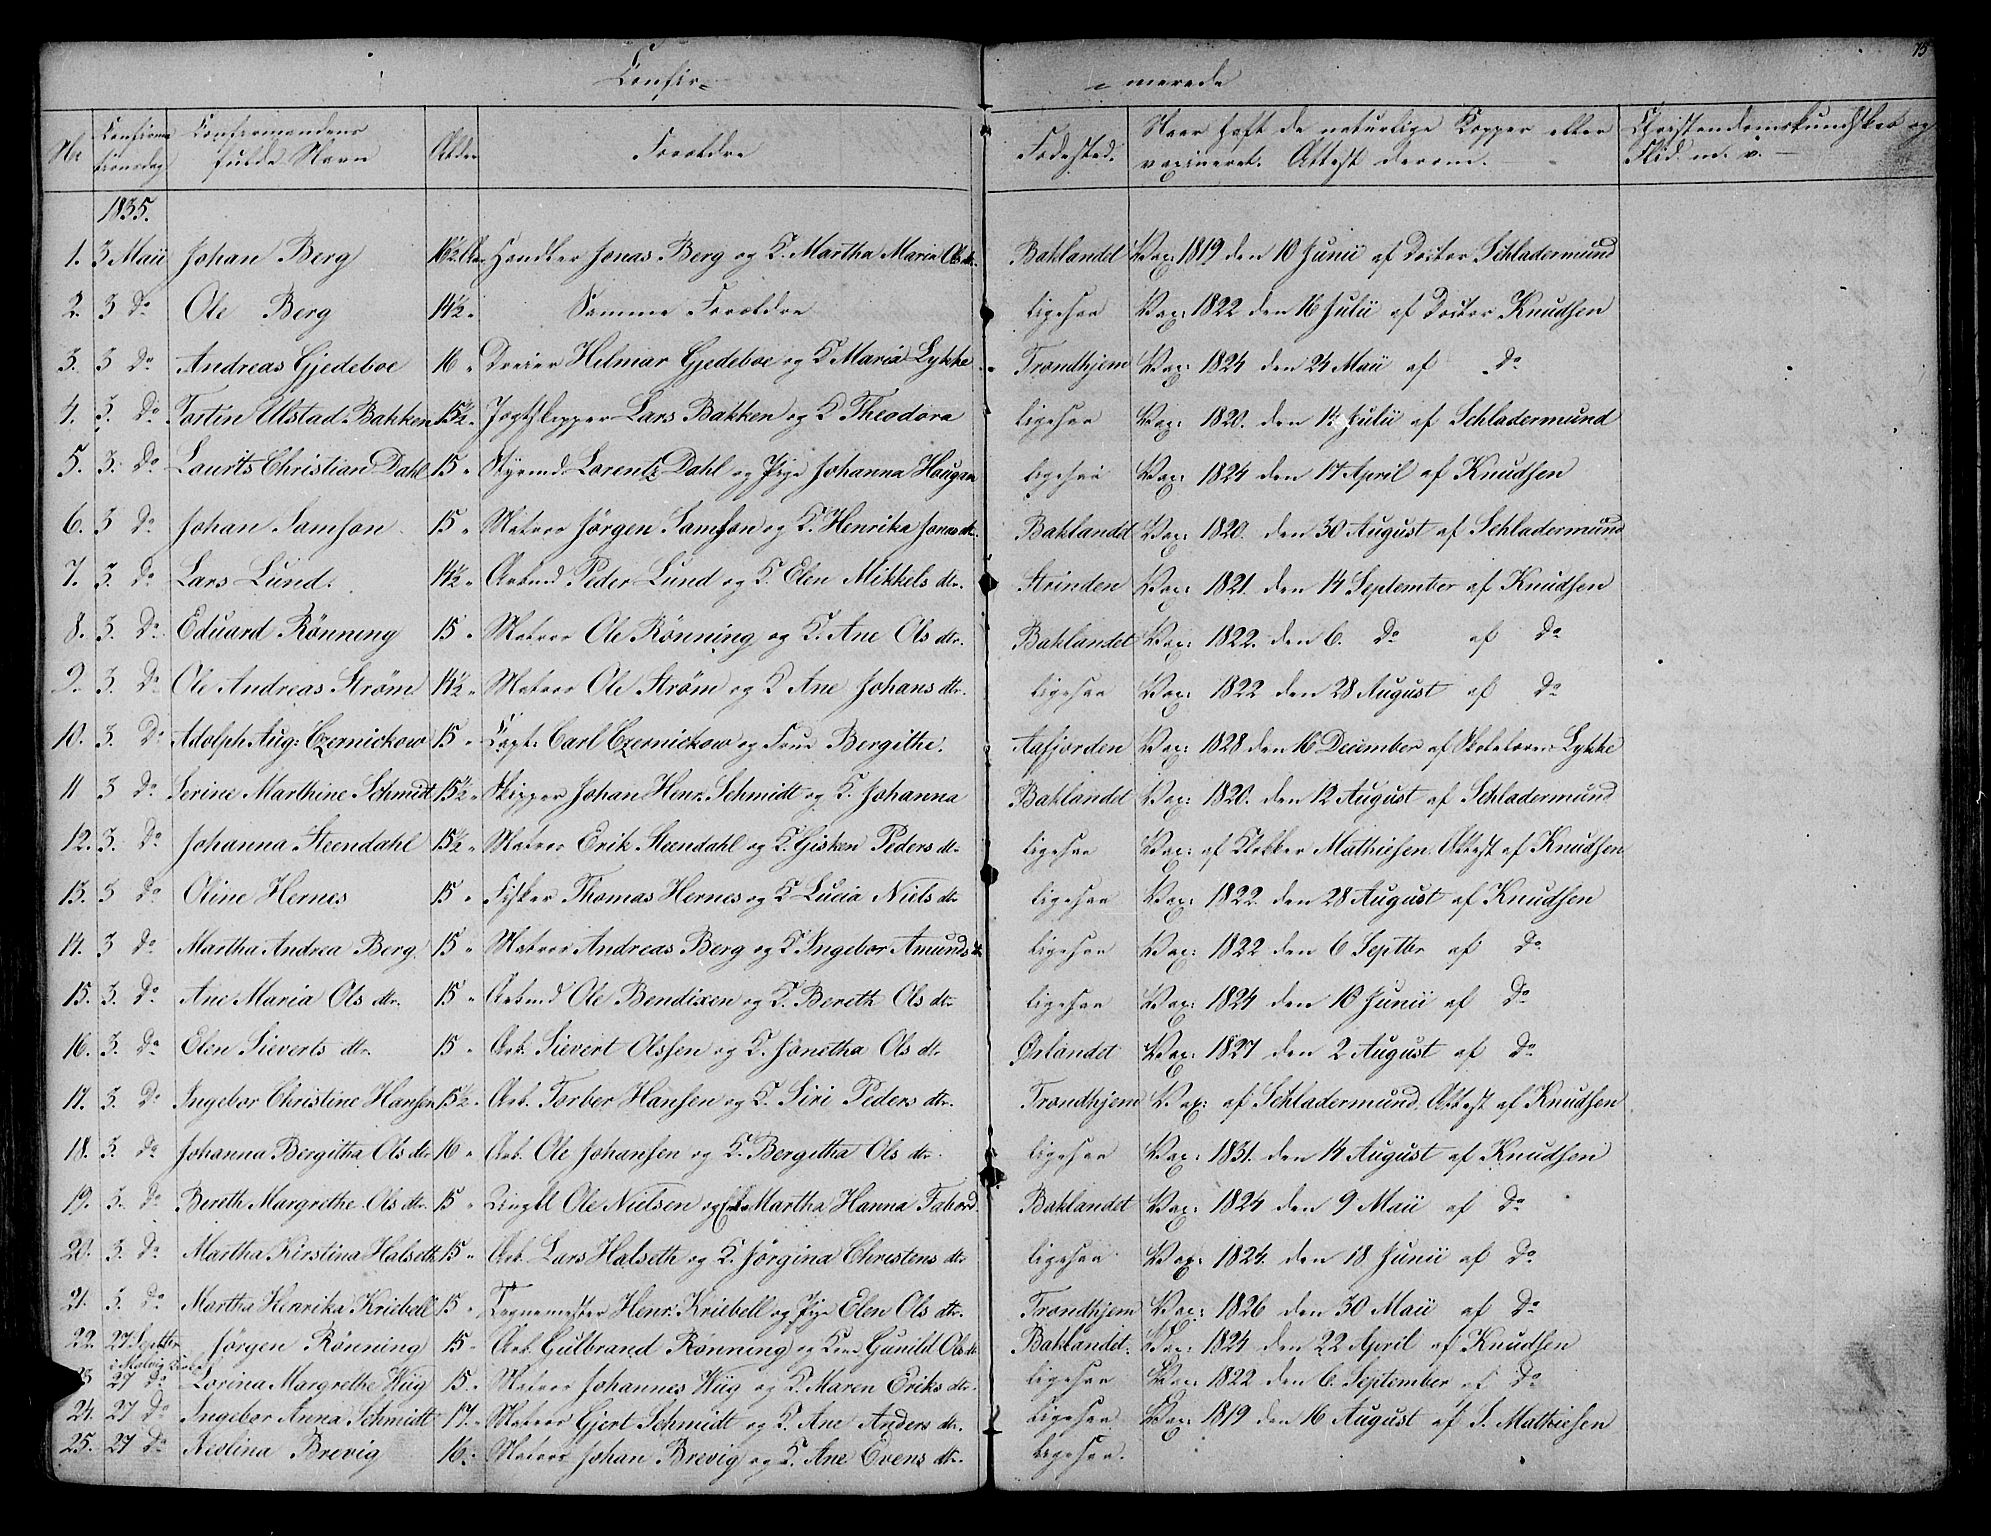 75
Confir- -merede
No Confirmationsdag Confirmandens fulde Navn Alder Forældre Fødested. Naar haft de naturlige Kopper eller vaxineret. Attest derom. Christendomskundskab og Flid m. v.
1835.
1. 3 Maii Johan Berg 16½ Handler Jonas Berg og K. Martha Maria Ols dtr. Baklandet Vax: 1819 den 10 Junii af Doctor Schladermund
2. 3 Do Ole Berg 14½ Samme Forældre ligesaa Vax: 1822 den 16 Julii af Doctor Knudsen
3. 3 Do Andreas Gjedeboe 16 Dreier Hilmar Gjedeboe og K Maria Lykke Trondhjem Vax: 1824 den 24 Maii af Do
4. 3. Do Torsten Ulstad Bakken 15½ Jagtskipper Lars Bakken og K Theodora ligesaa Vax: 1820. den Julii af Schladermund
5. 3. Do Laurits Christian Dahl 15 Styrmd. Lorentz Dahl og Pige Johanna Haugan ligesaa Vax: 1824 den 17 April af Knudsen
6. 3 Do Johan Samson 15 Matros Jörgen Samson og K. Henrika Jonas dtr. Baklandet Vax: 1820. den 30 August af Schladermund
7. 3. Do Lars Lund. 14½ Arbmd Peder Lund og K. Elen Mikkels dtr. Strinden Vax: 1821. den 14 September af Knudsen
8. 3. Do Eduard Rönning 15 Matros Ole Rönning og K. Ane Ols dtr. Baklandet Vax: 1822. den 6. Do af Do
9. 3. Do Ole Andreas Ström 14½ Matros Ole Ström og K Ane Johans dtr. ligesaa Vax: 1822 den 28 August af Do
10. 3. Do Adolph Aug: Czernickow 15 Capt: Carl Czernickow og Frue Bergithe. Aafjorden Vax: 1828 den 16 December af Skolelærer Lykke
11 3 Do Serine Marthine Schmidt 15½ Skipper Johan Henr. Schmidt og K. Johanna Baklandet Vax: 1820. den 12 August af Schladermund
12. 3. Do Johanna Steendahl 15½ Matros Erik Steendahl og K Gisken Peders dtr ligesaa Vax: af Klokker Mathiesen. Attest af Knudsen
13. 3 Do Oline Hernes 15 Fisker Thomas Hernes og K Lucia Niels dtr ligesaa Vax: 1822. den 28 August af Knudsen
14. 3 Do Martha Andrea Berg 15 Matros Andreas Berg og K. Ingebor Amunds dtr ligesaa Vax: 1822 den 6 Septbr af Do
15. 3. Do Ane Maria Ols dtr. 15 Arbmd Ole Bendixen og K. Bereth Ols dtr ligesaa Vax: 1824 den 10 Junii af Do
16. 3. Do Elen Sieverts dtr. 15 Arb. Sievert Olssen og K. Jonetha Ols dtr Ørlandet Vax: 1827 den 2 August af Do
17. 3. Do Ingebor Christine Hansen 15½ Arb. Torber Hansen og K. Siri Peders dtr. Trondhjem Vax: af Schladermund. Attest af Knudsen
18. 3. Do Johanna Bergitha Ols dtr 16 Arb. Ole Johansen og K. Bergitha Ols dtr. ligesaa Vax: 1831. den 14 August af Knudsen
19. 3. Do Bereth Margrethe Ols dtr. 15 Ole Nielsen og Martha Hanna Tabord. Baklandet Vax: 1824 den 9 Maii af Do
20. 3. Do Martha Kirstina Halseth 15 Arb. Lars Halseth og K. Jörgina Christens dtr ligesaa Vax: 1824. den 18 Junii af Do
21. 3. Do Martha Henrika Kriebell 15 Tegnemester Henr. Kriebell og Pige Elen Ols dtr. Trondhjem Vax: 1826 den 30 Maii af Do
22. 27 Septbr Jörgen Rönning 15 Arb. Gulbrand Rönning og Kone Gunild Ols dtr Baklandet. Vax: 1824 den 22 April af Knudsen
i Malvig Kirke
23 27 Do Lorina Margrethe Wiig 15 Matros Johannes Wiig og K. Maren Eriks dtr. ligesaa Vax: 1822 den 6. September af Do
24. 27 Do Ingebor Anna Schmidt 17. Matros Gjert Schmidt og K. Ane Anders dtr. ligesaa Vax: 1819 den 16 August af S. Mathiesen
25. 27 Do Nicolina Brevig 16. Matros Johan Brevig og K. Ane Evens dtr. ligesaa.